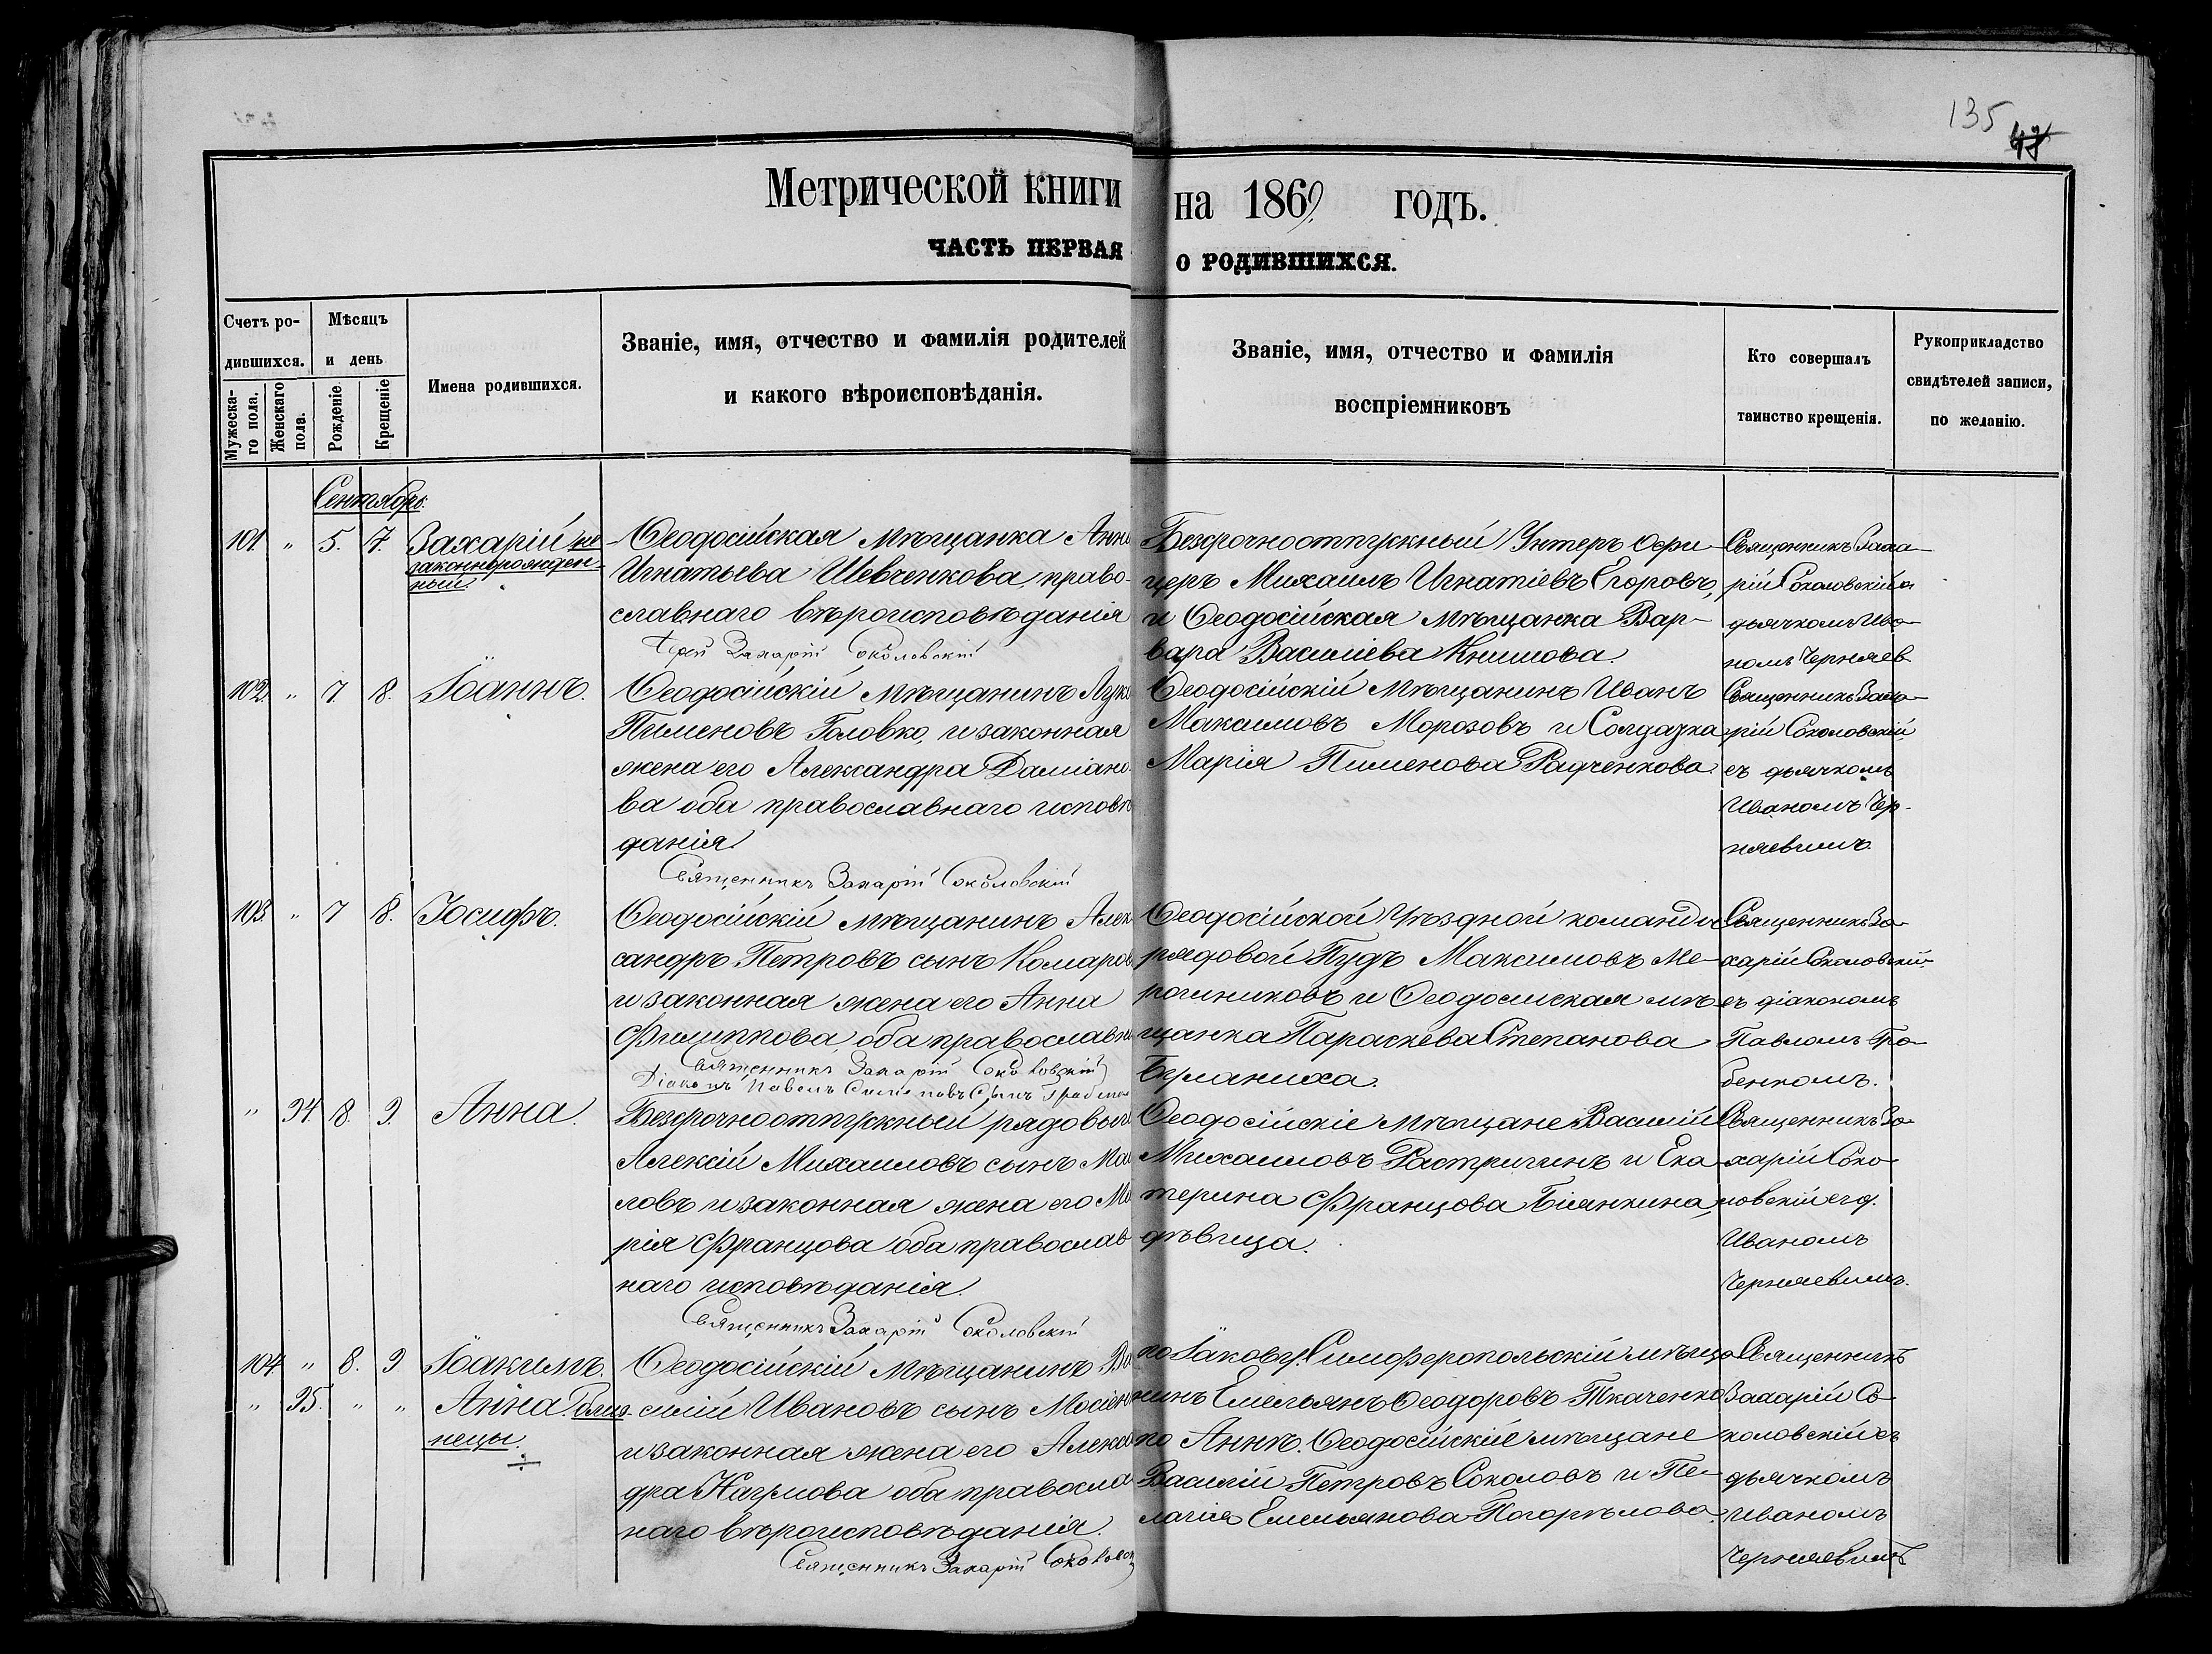 135
47
Метрической книги на 1869 годъ.
ЧАСТЬ ПЕРВАЯ О РОДИВШИХСЯ.
Счетъ ро-
дившихся.
Мужеска-
го пола.
Женскаго
пола.
Мѣсяцъ
и день
Рожденіе
Крещеніе
Имена родившихся.
Званіе, имя, отчество и фамилія родителей
и какого вѣроисповѣданія.
Званіе, имя, отчество и фамилія
воспріемниковъ
Кто совершалъ
таинство крещенія.
Рукоприкладство
свидѣтелей записи,
по желанію.
Сентябрь.
101 " 5. 7. Захарій не
законнорожден-
ный
Ѳеодосійская мѣщанка Анна
Игнатьева Шевченкова, право-
славнаго вѣроисповѣданія
Іерей Захарій Соколовскій
Безсрочноотпускный Унтеръ Офи-
церъ Михаилъ Игнатіевъ Егоровъ,
и Ѳеодосійская мѣщанка Вар-
вара Василіева Климова.
Священникъ Заха-
рій Соколовскій съ
дьячкомъ Ива-
номъ Черняев
102 " 7. 8. Іоаннъ.
Ѳеодосійскій мѣщанинъ Лука
Пименовъ Головко, и законная
жена его Александра Даміано-
ва оба православнаго исповѣ
данія
Священникъ Захарій Соколовскій
Ѳеодосійскій мѣщанинъ Иванъ
Максимовъ Морозовъ и Солдатка
Марія Пименова Радченкова
Священникъ Заха-
рій Соколовскій
съ дьячкомъ
Иваномъ Чер-
няевымъ.
103 " 7 8. Іосифъ.
Ѳеодосійскій мѣщанинъ Алек
сандръ Петровъ сынъ Комаров
и законная жена его Анна
Филиппова, оба православн
Священникъ Захарій Соколовскій
Діаконъ Павелъ сынъ
Ѳеодосійской Уѣздной команды
рядовой Пудъ Максимовъ Ме-
рошниковъ и Ѳеодосійская мѣ-
щанка Параскева Степанова
Бурланиха.
Священникъ За-
харій Соколовскій
съ діакономъ
Павломъ Гра-
бенкомъ.
" 94. 8. 9. Анна.
Безсрочноотпускный рядовый
Алексій Михаиловъ сынъ Ма
ловъ и законная жена его Ма
рія Францова оба православ
наго исповѣданія.
Священникъ Захарій Соколовскій
Ѳеодосійскіе мѣщане Василій
Михаиловъ Растригинъ и Ека-
терина Францова Біянкина,
дѣвица.
Священникъ За-
харій Соко-
ловскій съ д.
Иваномъ
Черняевымъ.
104 " 8. 9 Іоакимъ.
" 95. " " Анна. близ-
нецы.
Ѳеодосійскій мѣщанинъ Ва
силій Ивановъ сынъ
и законная жена его Алекса
дра Наумова оба правосла
наго вѣроисповѣданія.
Священникъ Захарій Соколовск
по Іакову. Симферопольскій мѣща-
нинъ Емельянъ Ѳеодоровъ Ткаченко
по Аннѣ. Ѳеодосійскіе мѣщане
Василій Петровъ Соколовъ и Пе-
лагія Емельянова Погорѣлова.
Священникъ
Захарій Со-
коловскій съ
дьячкомъ
Иваномъ
Черняевымъ